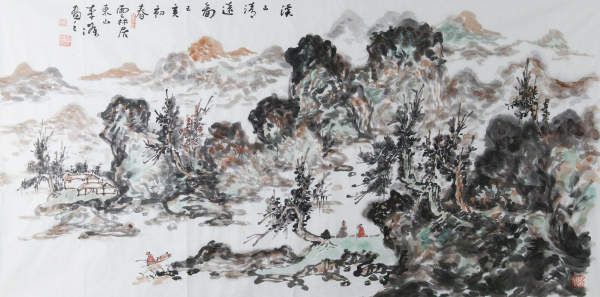 溪山清遠圖己亥初春
雲林居
東山
李
畫之